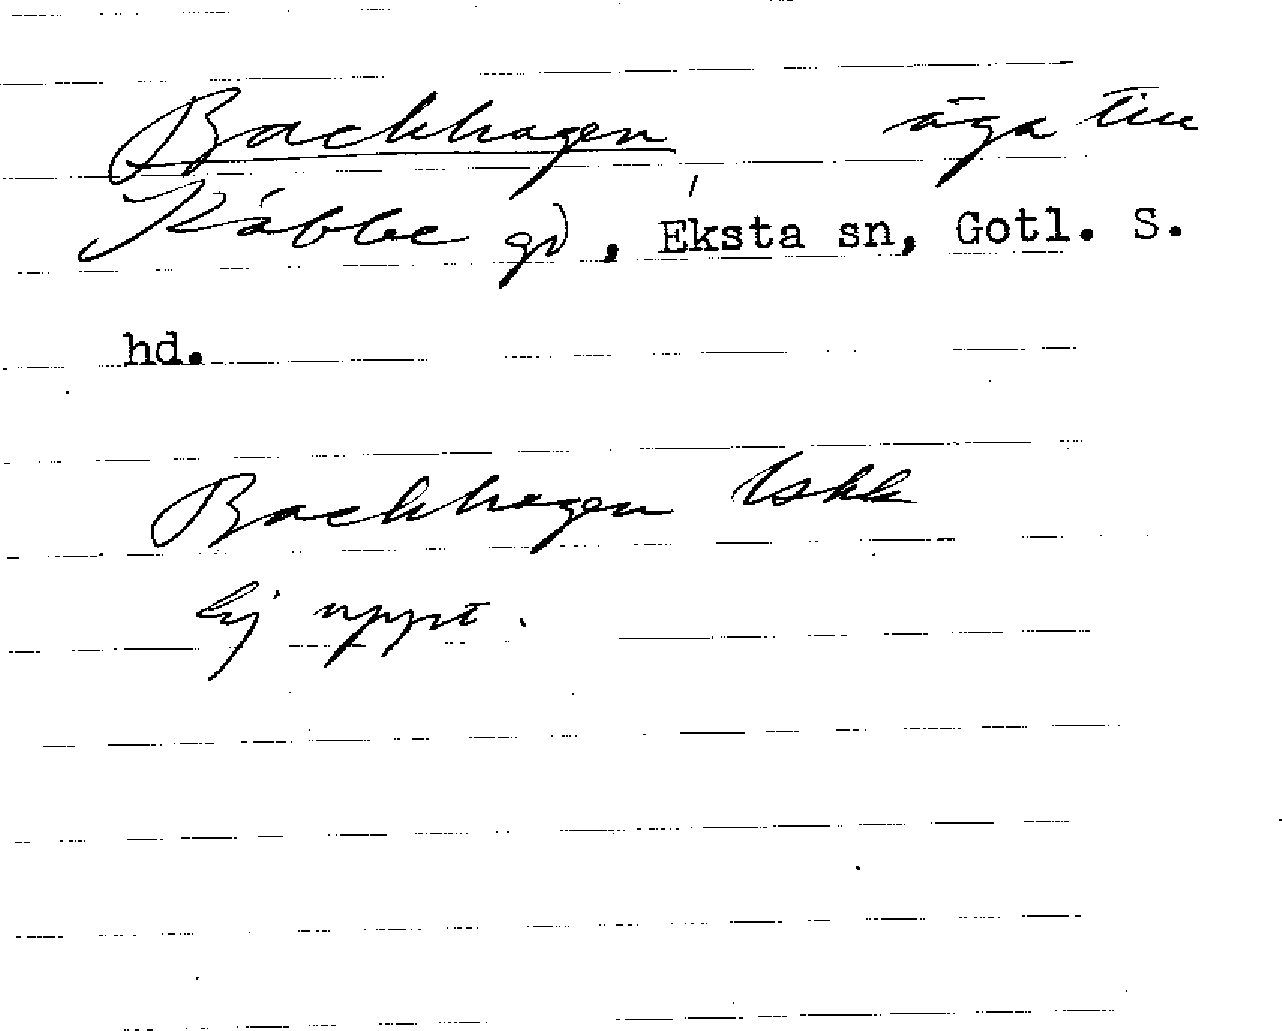 Backhagen äga till
gd, Eksta sn, Gotl. S.
hd.
Backhagen lskk
Ej uppt.